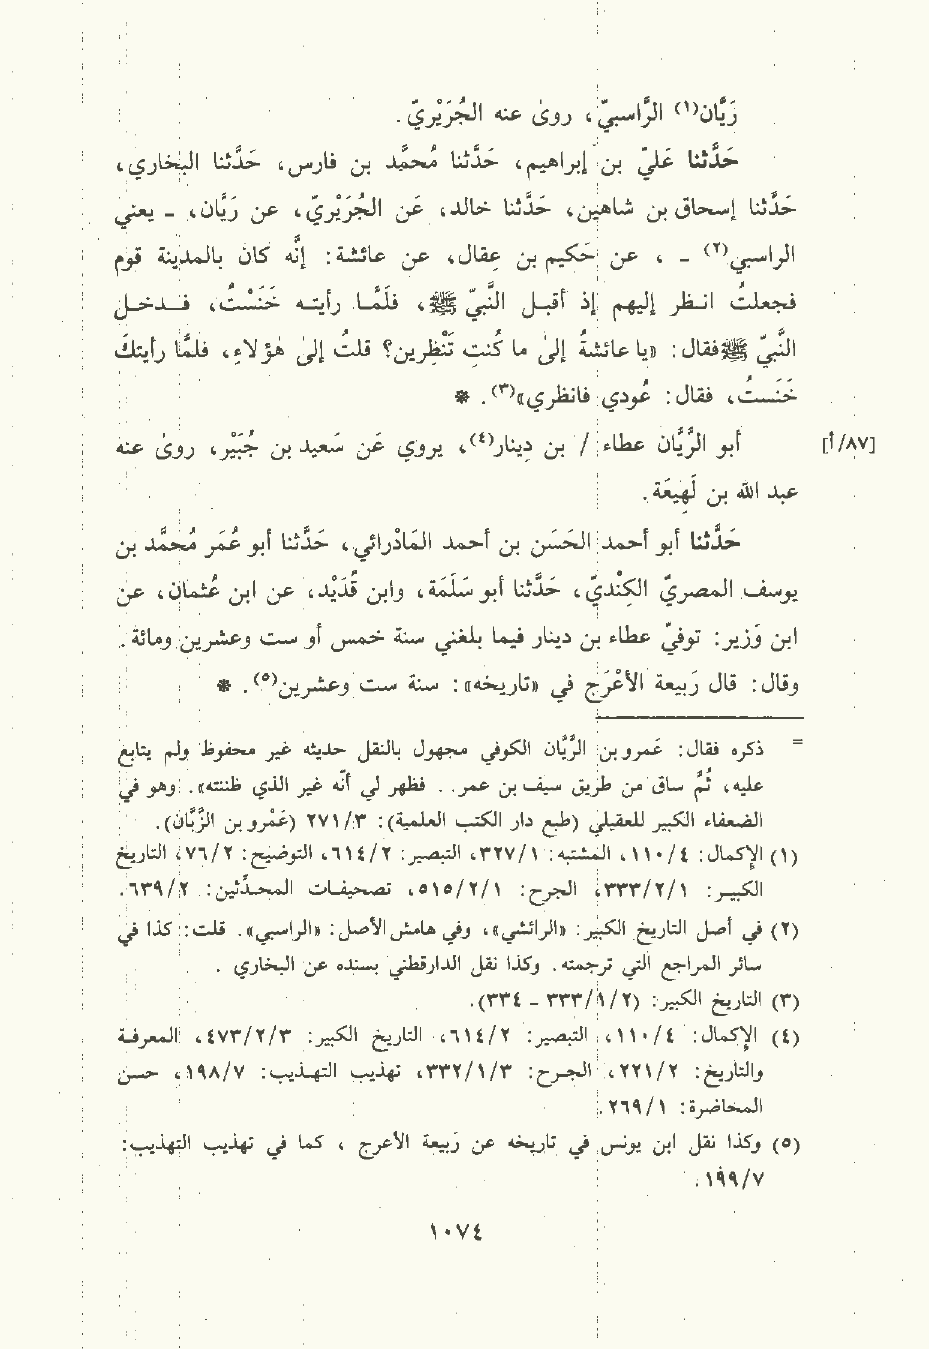 زَبَّان(١) الرَّاسبيّ، روىٰ عنه الجُرَيْريّ.
حَدَّثنا عَليّ بن إبراهيم، حَدَّثنا مُحمَّد بن فارس، حَدَّثنا البخاري،
حَدَّثنا إسحاق بن شاهين، حَدَّثنا خالد، عَن الجُرَيْريّ، عن زَبَّان، ـ يعني
الراسبي(٢) ـ ، عن حَكيم بن عِقال، عن عائشة: إنَّه كان بالمدينة قوم
فجعلتُ انـظـر إليهم إذ أقبـل النَّبيّ ﷺ، فلَمَّـا رأيتـه خَنَسْتُ، فـدخـل
النَّبيّ ﷺ فقال: «يا عائشةُ إلىٰ ما كُنتِ تَنْظِرين؟ قلتُ إلىٰ هٰؤلاءِ، فلمَّا رأيتكَ
خَنَستُ، فقال: عُودي فانظري»(٣). *
[٨٧/أ] أبو الرَّيَّان عطاء / بن دينار(٤)، يروي عَن سَعيد بن جُبَيْر، روىٰ عنه
عبد الله بن لَهِيعَة.
حَدَّثنا أبو أحمد الحَسَن بن أحمد المَادْرائي، حَدَّثنا أبو عُمَر مُحمَّد بن
يوسف المصريّ الكِنْديّ، حَدَّثنا أبو سَلَمَة، وابن قُدَيْد، عن ابن عُثمان، عن
ابن وَزير: توفيّ عطاء بن دينار فيما بلغني سنة خمس أو ست وعشرين ومائة.
وقال: قال رَبيعة الأَعْرَج في «تاريخه»: سنة ست وعشرين(٥). *
= ذكره فقال: عَمرو بن الرَّيَّان الكوفي مجهول بالنقل حديثه غير محفوظ ولم يتابع
عليه، ثُمَّ ساق من طريق سيف بن عمر. . فظهر لي أنَّه غير الذي ظننته». وهو في
الضعفاء الكبير للعقيلي (طبع دار الكتب العلمية): ٢٧١/٣ (عَمْرو بن الزَّبَّان).
(١) الإكمال: ١١٠/٤، المشتبه: ٣٢٧/١، التبصير: ٦١٤/٢، التوضيح: ٧٦/٢، التاريخ
الكبيـر: ٣٣٣/٢/١، الجرح: ٥١٥/٢/١، تصحيفـات المحـدِّثين: ٦٣٩/٢.
(٢) في أصل التاريخ الكبير: «الرائشي»، وفي هامش الأصل: «الراسبي». قلت: كذا في
سائر المراجع التي ترجمته. وكذا نقل الدارقطني بسنده عن البخاري .
(٣) التاريخ الكبير: (٣٣٣/١/٢ ـ ٣٣٤).
(٤) الإكمال: ١١٠/٤، التبصير: ٦١٤/٢، التاريخ الكبير: ٤٧٣/٢/٣، المعرفـة
والتاريخ: ٢٢١/٢، الجـرح: ٣٣٢/١/٣، تهذيب التهـذيب: ١٩٨/٧، حسـن
المحاضرة: ٢٦٩/١.
(٥) وكذا نقل ابن يونس في تاريخه عن رَبيعة الأعرج ، كما في تهذيب التهذيب:
١٩٩/٧.
١٠٧٤